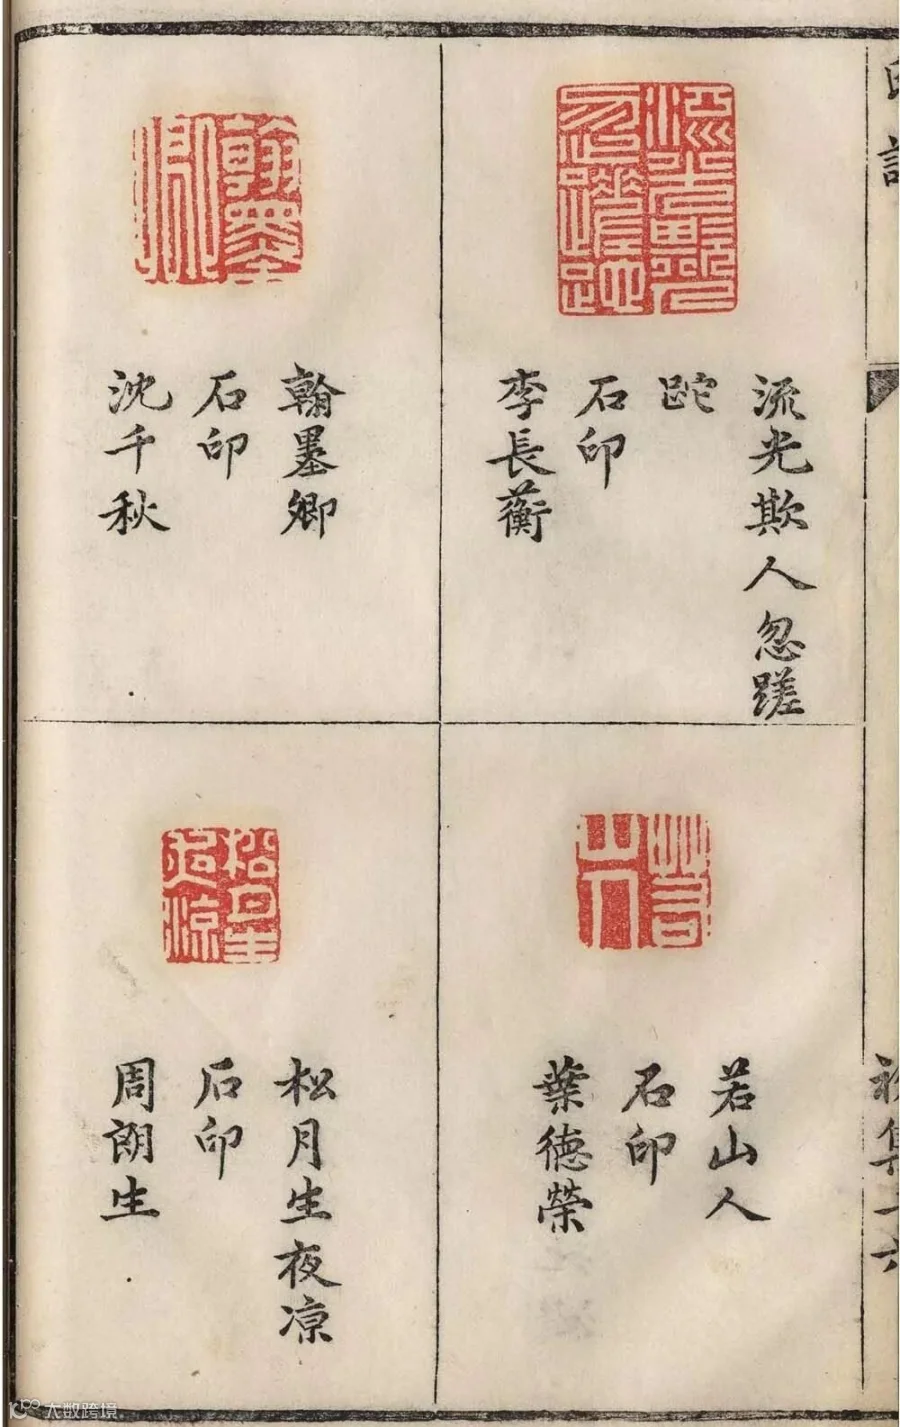 流光欺人忽蹉
跎
石印
李長蘅
翰墨卿
石印
沈千秋
若山人
石印
葉德榮
松月生夜凉
石印
周朗生
大数跨境